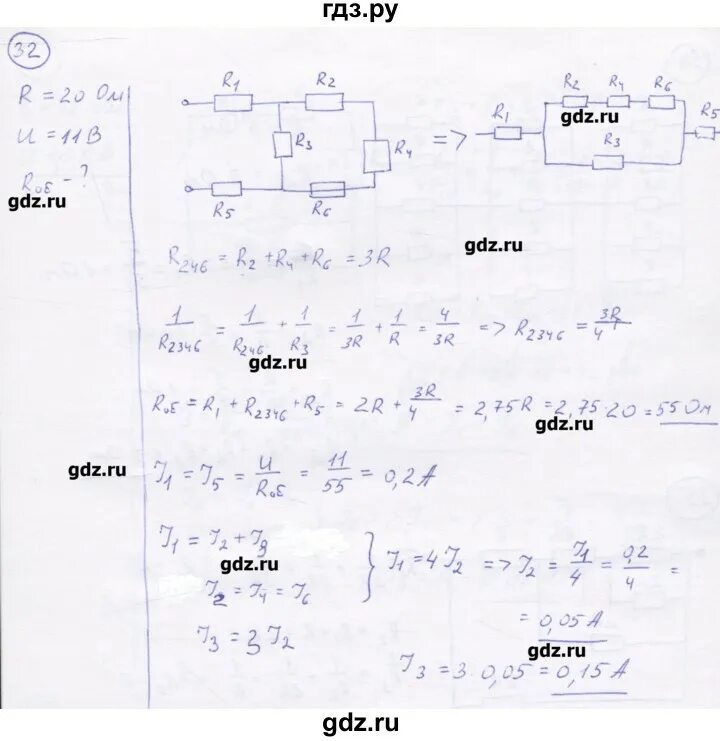 гдз.ру
32
R = 20 Ом
U = 11 В
Rоб - ?
gdz.ru
R1 R2 R3 R4 R5 R6
=>
R1 R2 R4 R6 R3 R5
gdz.ru
gdz.ru
R246 = R2 + R4 + R6 = 3R
1/R2346 = 1/R246 + 1/R3 = 1/3R + 1/R = 4/3R => R2346 = 3R/4
gdz.ru
Rоб = R1 + R2346 + R5 = 2R + 3R/4 = 2,75R = 2,75·20 = 55 Ом
gdz.ru
gdz.ru
I1 = I5 = U/Rоб = 11/55 = 0,2 А
I1 = I2 + I3 } I1 = 4I2 => I2 = I1/4 = 0,2/4 =
gdz.ru
I2 = I4 = I6
= 0,05 А
I3 = 3I2
gdz.ru
I3 = 3·0,05 = 0,15 А
gdz.ru